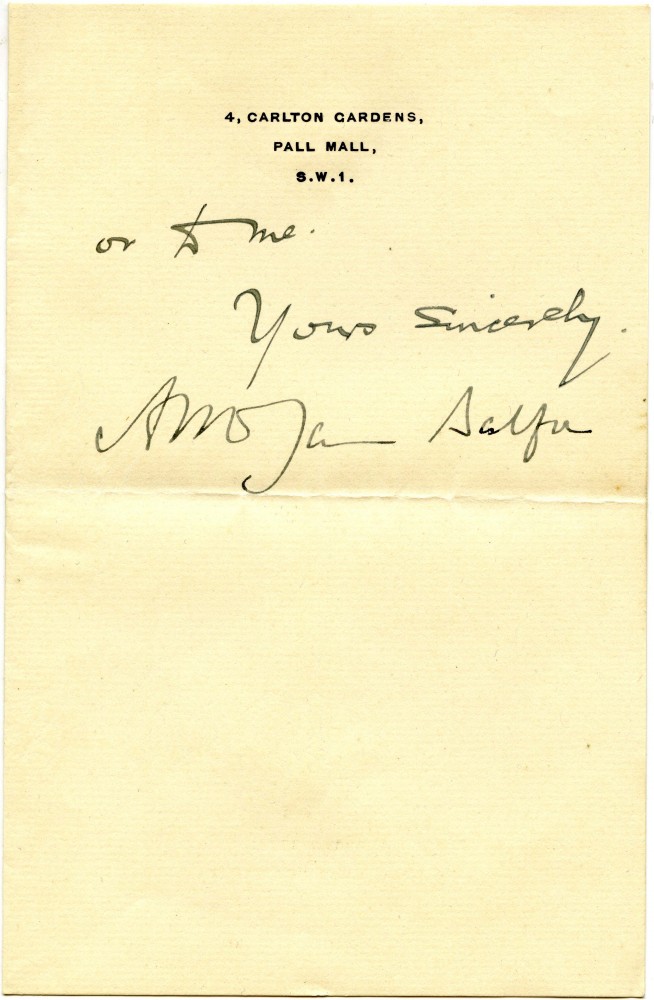 4, CARLTON GARDENS,
PALL MALL,
S.W.1.
or to me.
Yours sincerely.
Arthur James Balfour